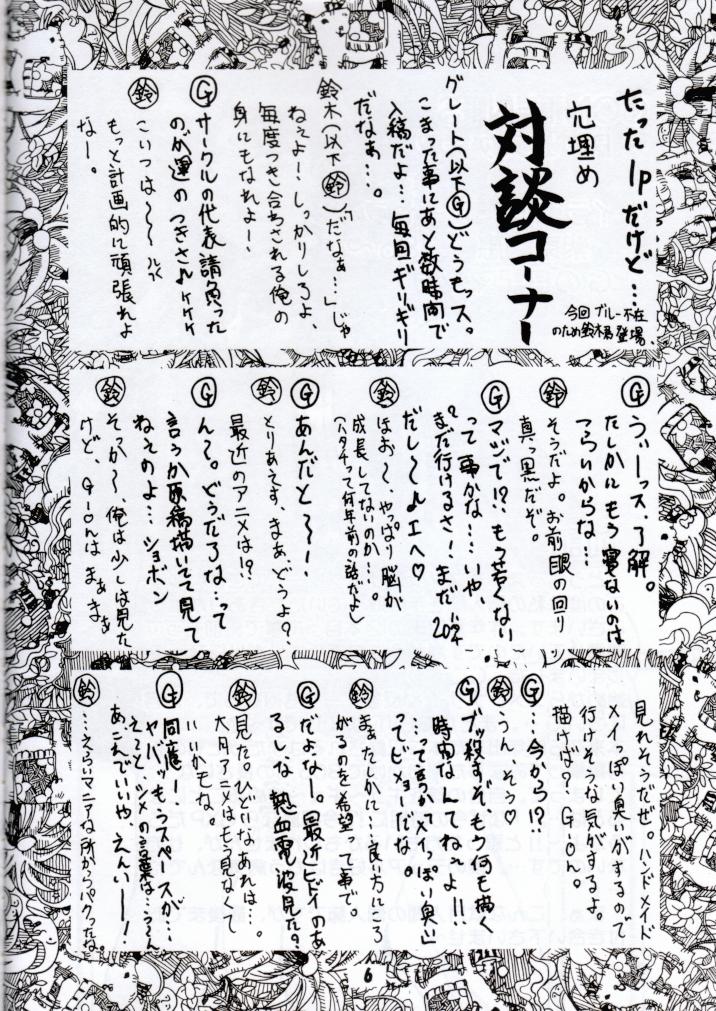 たった1Pだけど…
穴埋め
対談コーナー
今回ブルー不在
のため鈴木君登場、
グレート(以下Ⓖ)どうもッス。
こまった事にあと数時間で
入稿だよ…毎回ギリギリ
だなぁ…。
鈴木(以下㊕)「だなぁ…」じゃ
ねぇよ!しっかりしろよ、
毎度つき合わされる俺の
身にもなれよー!
Ⓖ サークルの代表請負った
のが運のつきさ♪ケケケ
鈴 こいつは〜〜
もっと計画的に頑張れよ
なー。
Ⓖ うぃーっス、了解。
たしかにもう寝ないのは
つらいからな…
鈴 そうだよ。お前眼の回り
真っ黒だぞ。
Ⓖ マジで!?もう若くない
って事かな……いや、
まだ行けるさ!まだ20才
だし〜♪エヘ♡
鈴 ほお〜、やっぱり脳が
成長してないのか…。
(ハタチって何年前の話だよ)
Ⓖ あんだと〜!
鈴 とりあえず、まあどうよ?
最近のアニメは!?
Ⓖ ん〜。どうだろな…って
言うか原稿描いてて見て
ねぇのよ…ショボン
鈴 そっか〜、俺は少しは見た
けど、G-onはまぁまぁ
見れそうだぜ。ハンドメイド
メイっぽい臭いがするので
行けそうな気がするよ。
描けば?G-on。
Ⓖ …今から?
鈴 うん、そう♡
Ⓖ ブッ殺すぞ、そもそも何も
時間なんてねーよ!!
…って言うか「メイっぽい臭い」
ってビミョーだな。
鈴 まぁたしかに…良い方にころ
がるのを希望って事で。
Ⓖ だよなー。最近ヒドイのあ
るいな熱血電波見た?
鈴 見た、ひどいなあれは…。
大月アニメはもう見なくて
いいかもな。
Ⓖ 同感ー!
ヤバッもうスペースが…
えーと、シメの言葉は…〜〜
あこんでいいや えんいー!
鈴 …えらいマニアな所からパクったね。
6